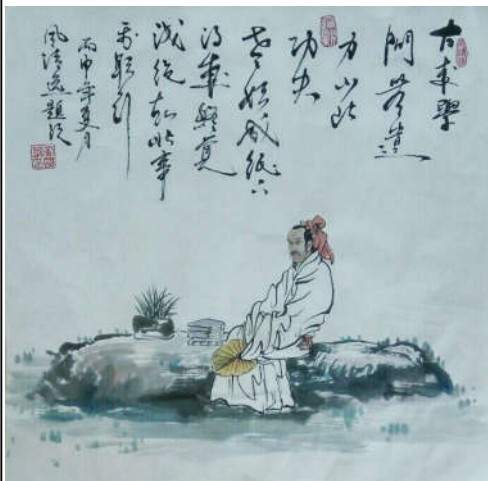 古来學
問無遺
力少壯
功夫
老始成紙上
得来終覺
淺絕知此事
要躬行
丙申年夏月
風清逸題